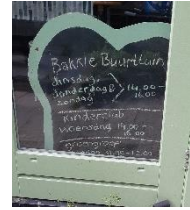 Bakkie Buurttuin
dinsdag,
donderdag & 14.00-
zondag 16.00
Kinderclub
woensdag 14.00-
16.00